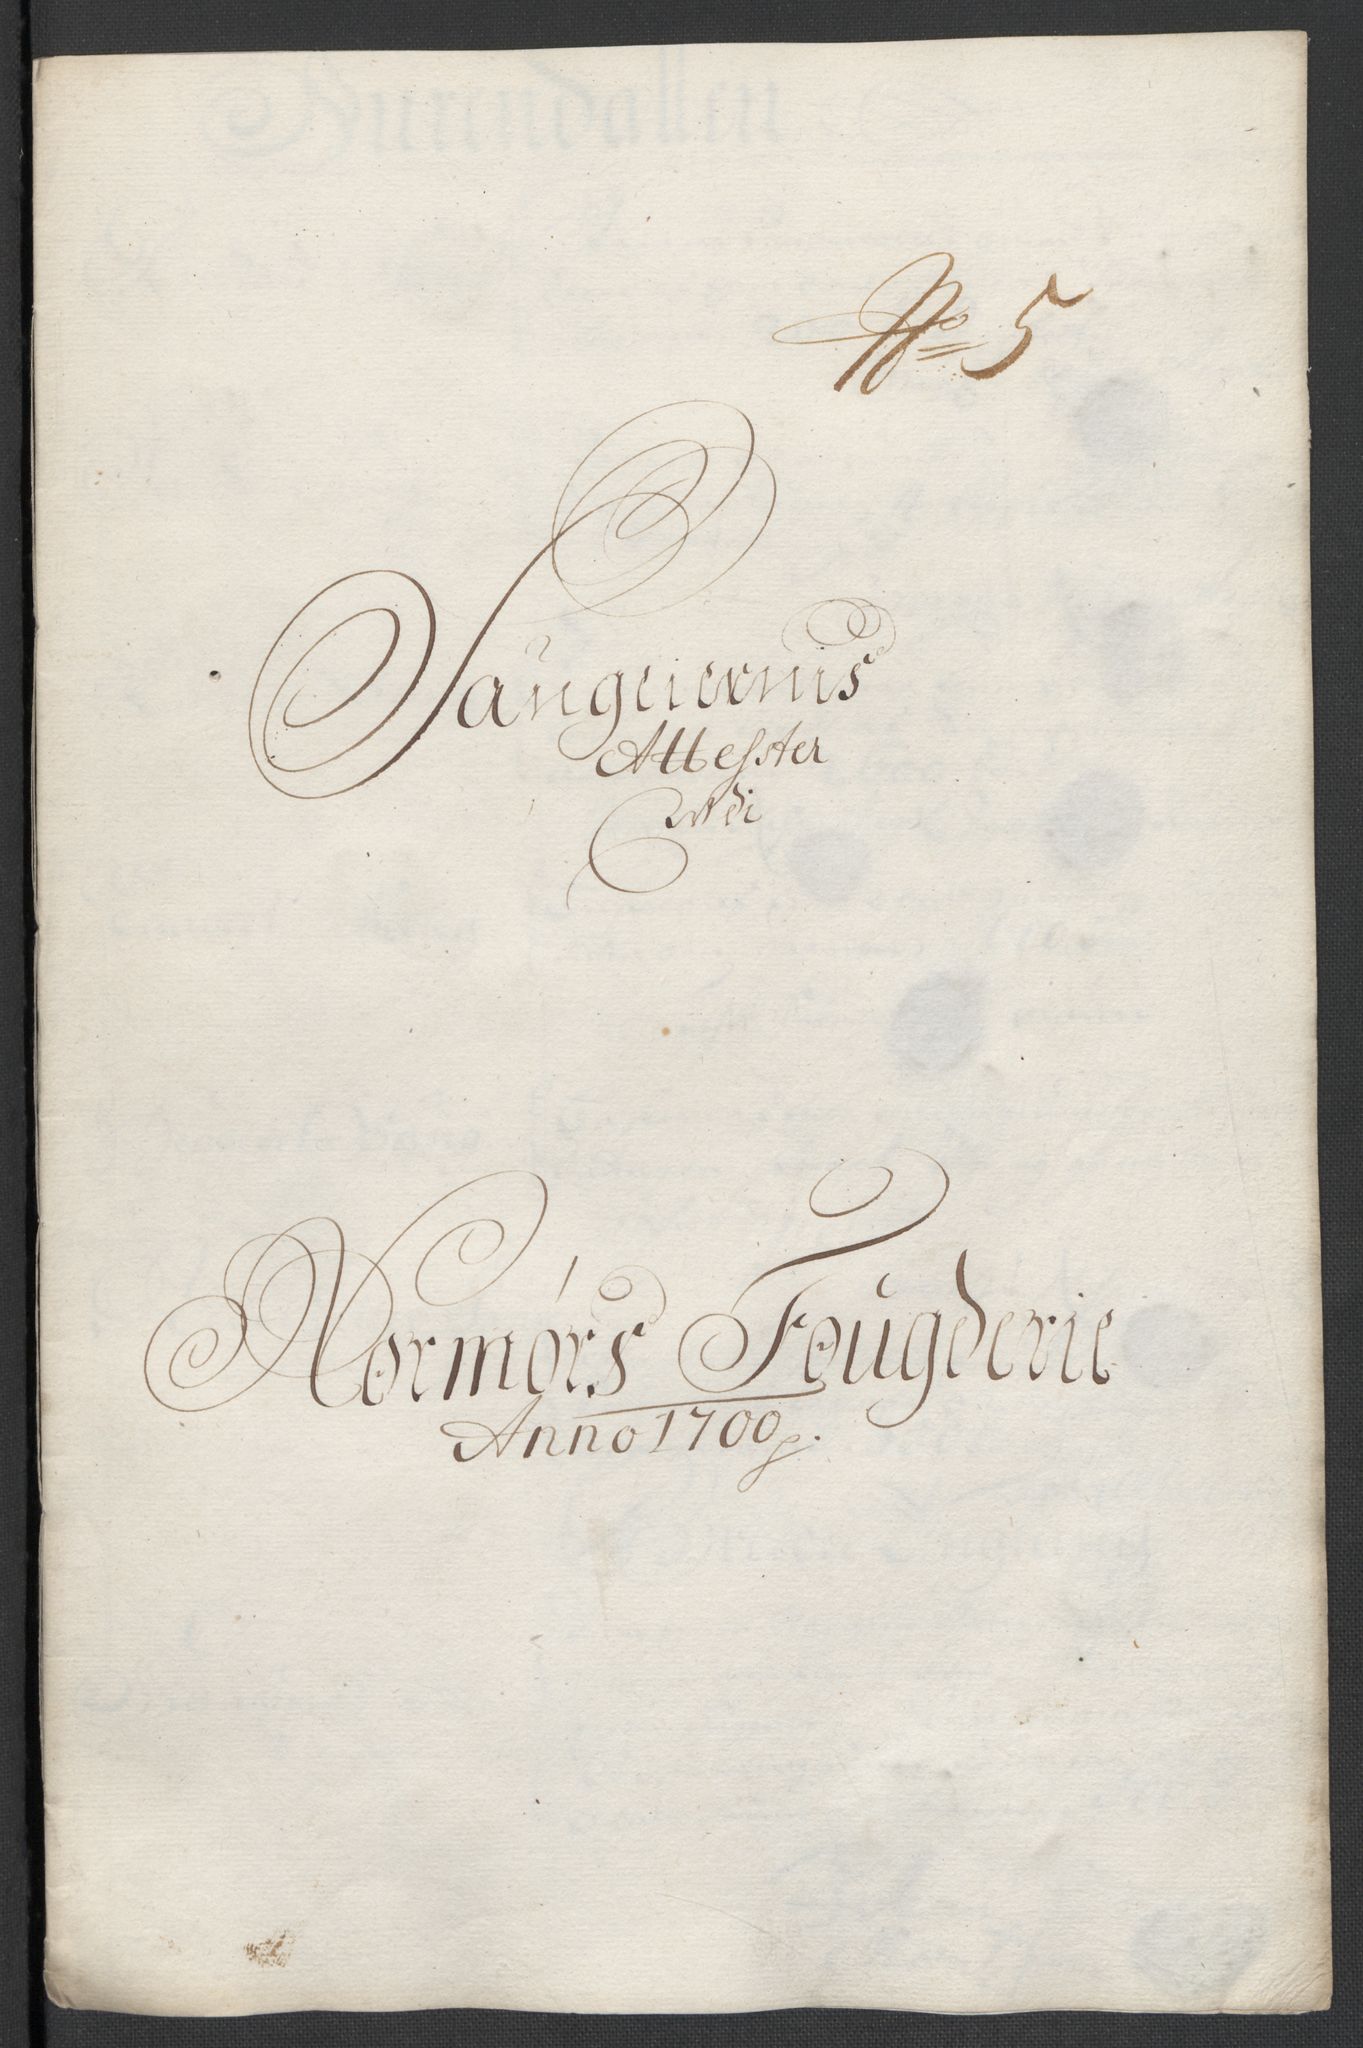 No 5
Saugeiernis
Attester
Udi
Normørs Fougderie
Anno 1700